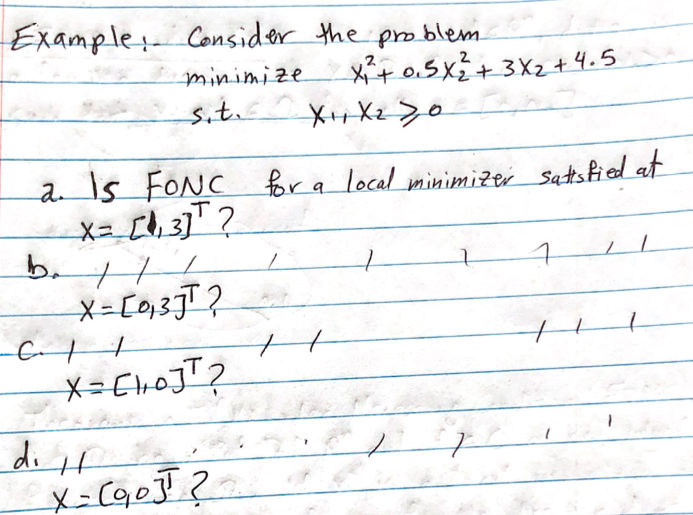 Example:- Consider the problem
minimize x₁² + 0.5x₂² + 3x₂ + 4.5
s.t. x₁, x₂ ≥ 0
a. Is FONC for a local minimizer satisfied at
x = [1,3]ᵀ ?
b. / / / / / / / / /
x = [0,3]ᵀ ?
c. / / / / / / /
x = [1,0]ᵀ ?
d. / / / / / /
x = [0,0]ᵀ ?